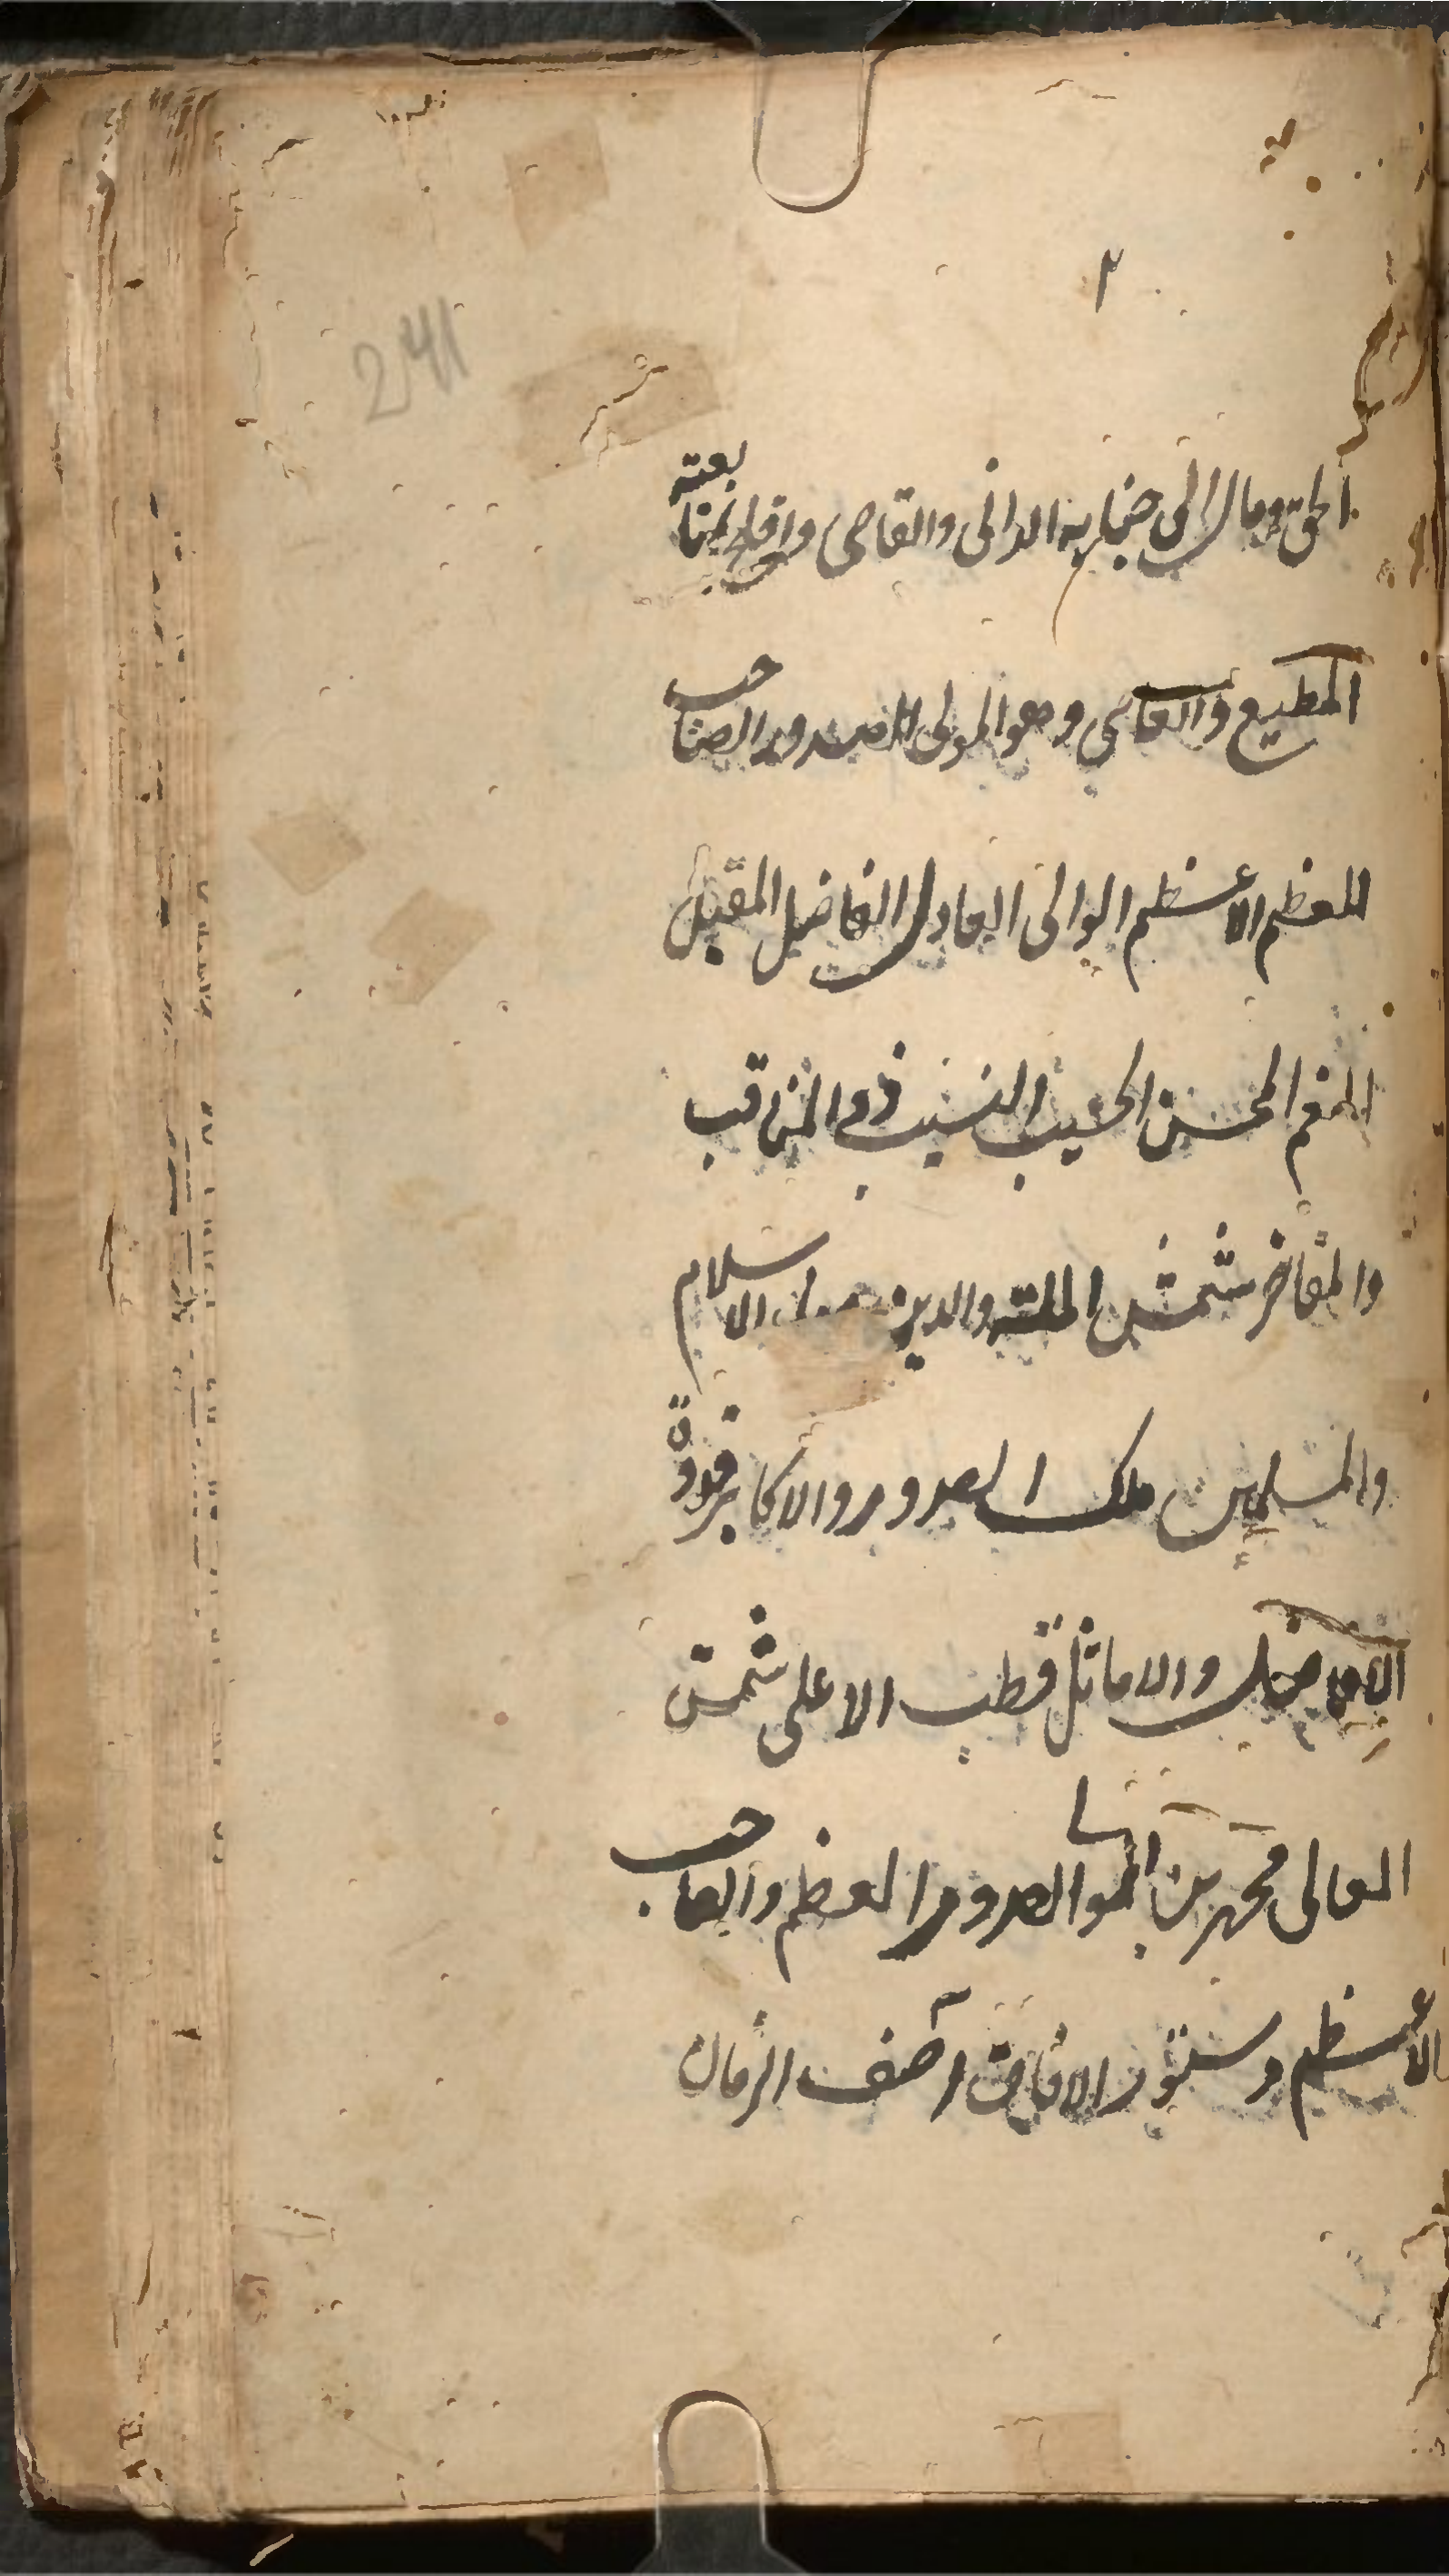 ٢
241
الحق ومال الى جنابه الدانى والقاصى وافلح بمتابعته
المطيع والعاصى وهو المولى الصدور الصاحب
المعظم الاعظم الوالى العادل الفاضل المقبل
المنعم المحسن الحسيب النسيب ذو المناقب
والمفاخر شمس الملة والدين الاسلام
والمسلمين ملك الصدور والاكابر قدوة
الافاضل والاماثل قطب الاعلى شمس
المعالى محمد بن الصدور العظم والصاحب
الاعظم دستور الافاق آصف الزمان